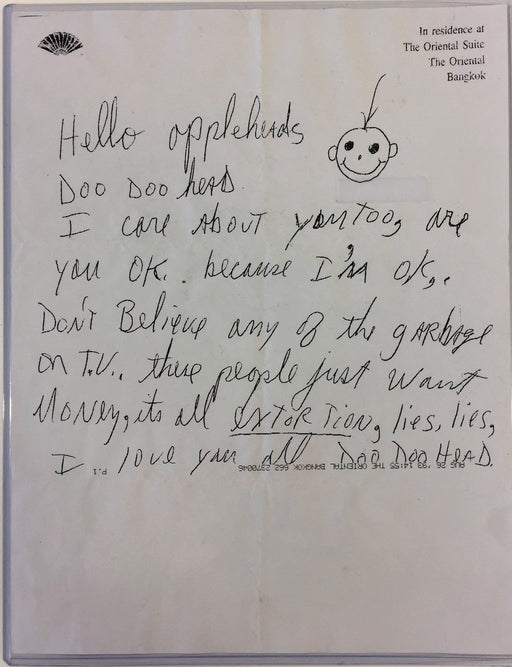 In residence at
The Oriental Suite
The Oriental
Bangkok
Hello appleheads
Doo Doo head.
I care About you too, are
you OK. because I'm OK,.
Don't Believe any of the gARbage
on T.V., these people just want
Money, its all extoRTion, lies, lies,
I love you all Doo Doo HeAD.
AUG 26 '93 14:55 THE ORIENTAL BANGKOK 662 2370046 P.1